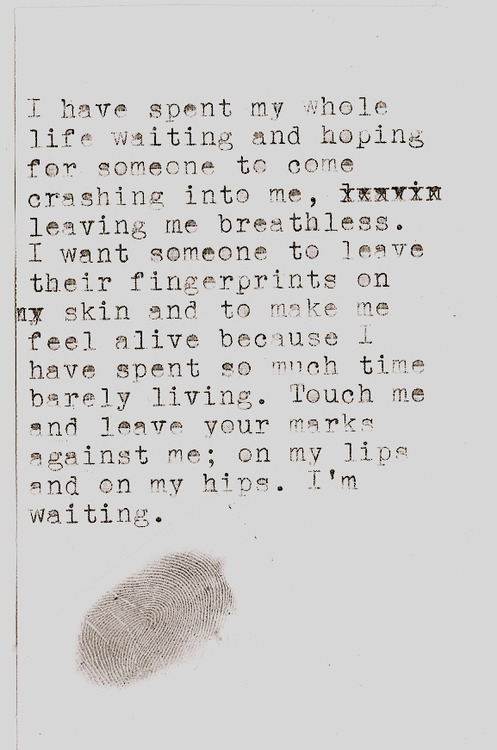 I have spent my whole
life waiting and hoping
for someone to come
crashing into me,
leaving me breathless.
I want someone to leave
their fingerprints on
my skin and to make me
feel alive because I
have spent so much time
barely living. Touch me
and leave your marks
against me; on my lips
and on my hips. I'm
waiting.